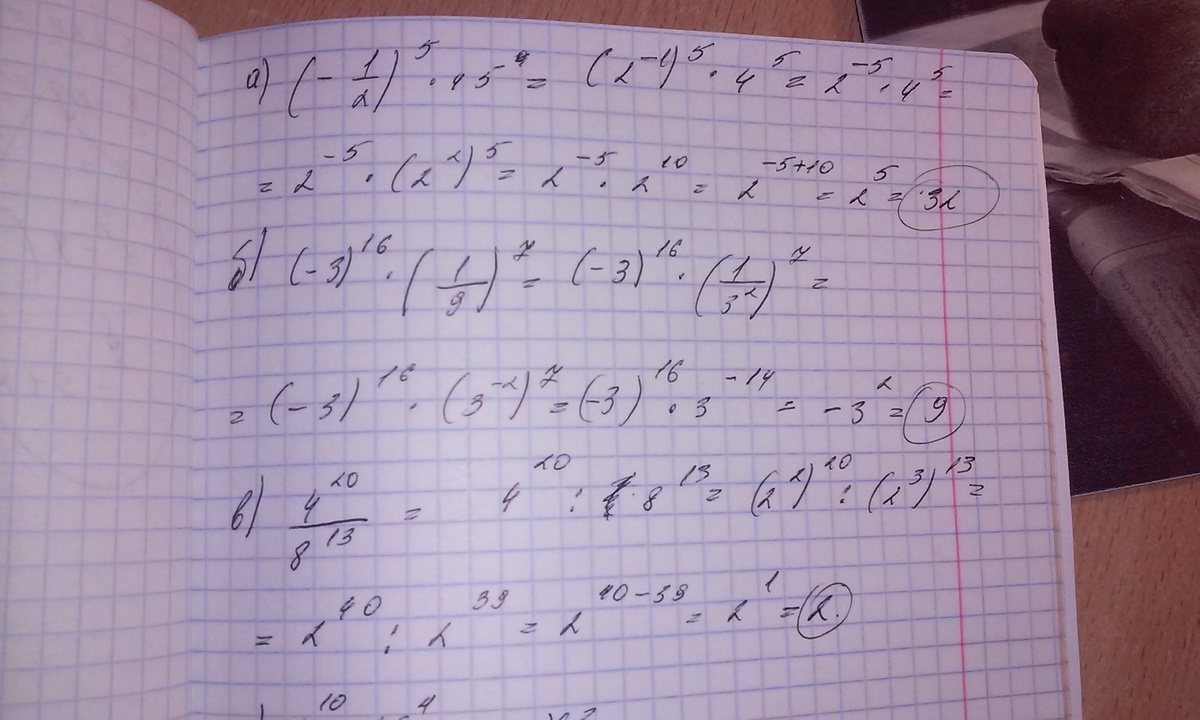 а) (-1/2)^5 · 45^4 = (2^-1)^5 · 4^5 = 2^-5 · 4^5 =
= 2^-5 · (2^2)^5 = 2^-5 · 2^10 = 2^-5+10 = 2^5 = 32
б) (-3)^16 · (1/9)^7 = (-3)^16 · (1/3^2)^7 =
= (-3)^16 · (3^-2)^7 = (-3)^16 · 3^-14 = -3^2 = 9
в) 4^20/8^13 = 4^20 : 8^13 = (2^2)^20 : (2^3)^13 =
= 2^40 : 2^39 = 2^40-39 = 2^1 = 2.
10 4